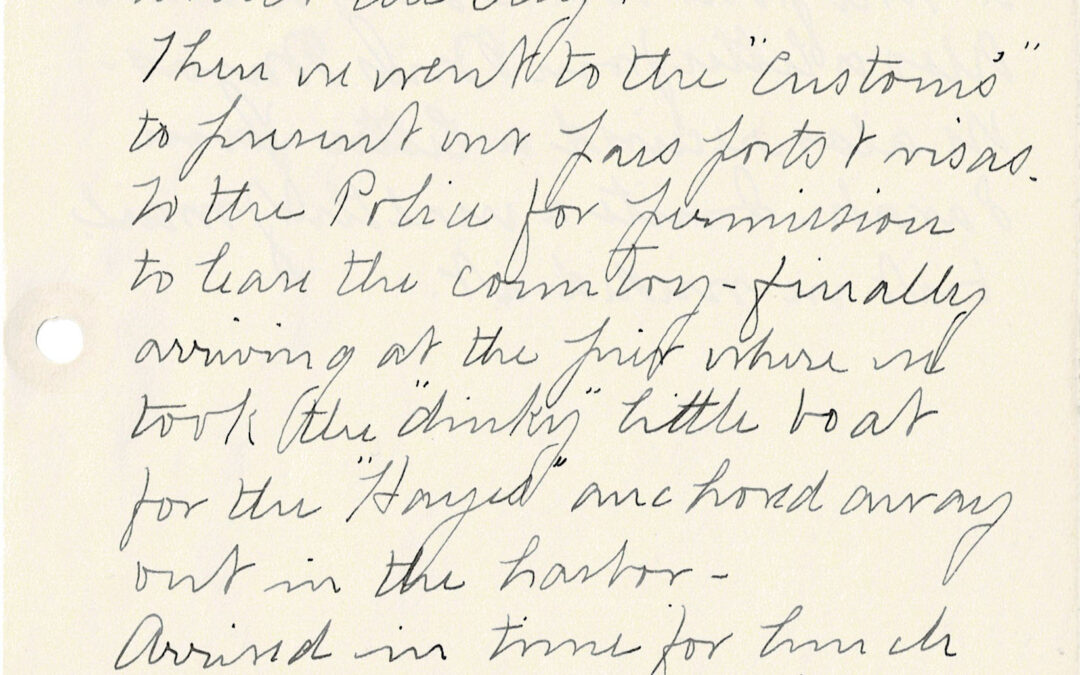 Then we went to the "Customs"
to present our passports & visas.
To the Police for permission
to leave the country - finally
arriving at the pier where we
took the "dinky" little boat
for the "Hayes" anchored away
out in the harbor -
Arrived in time for lunch